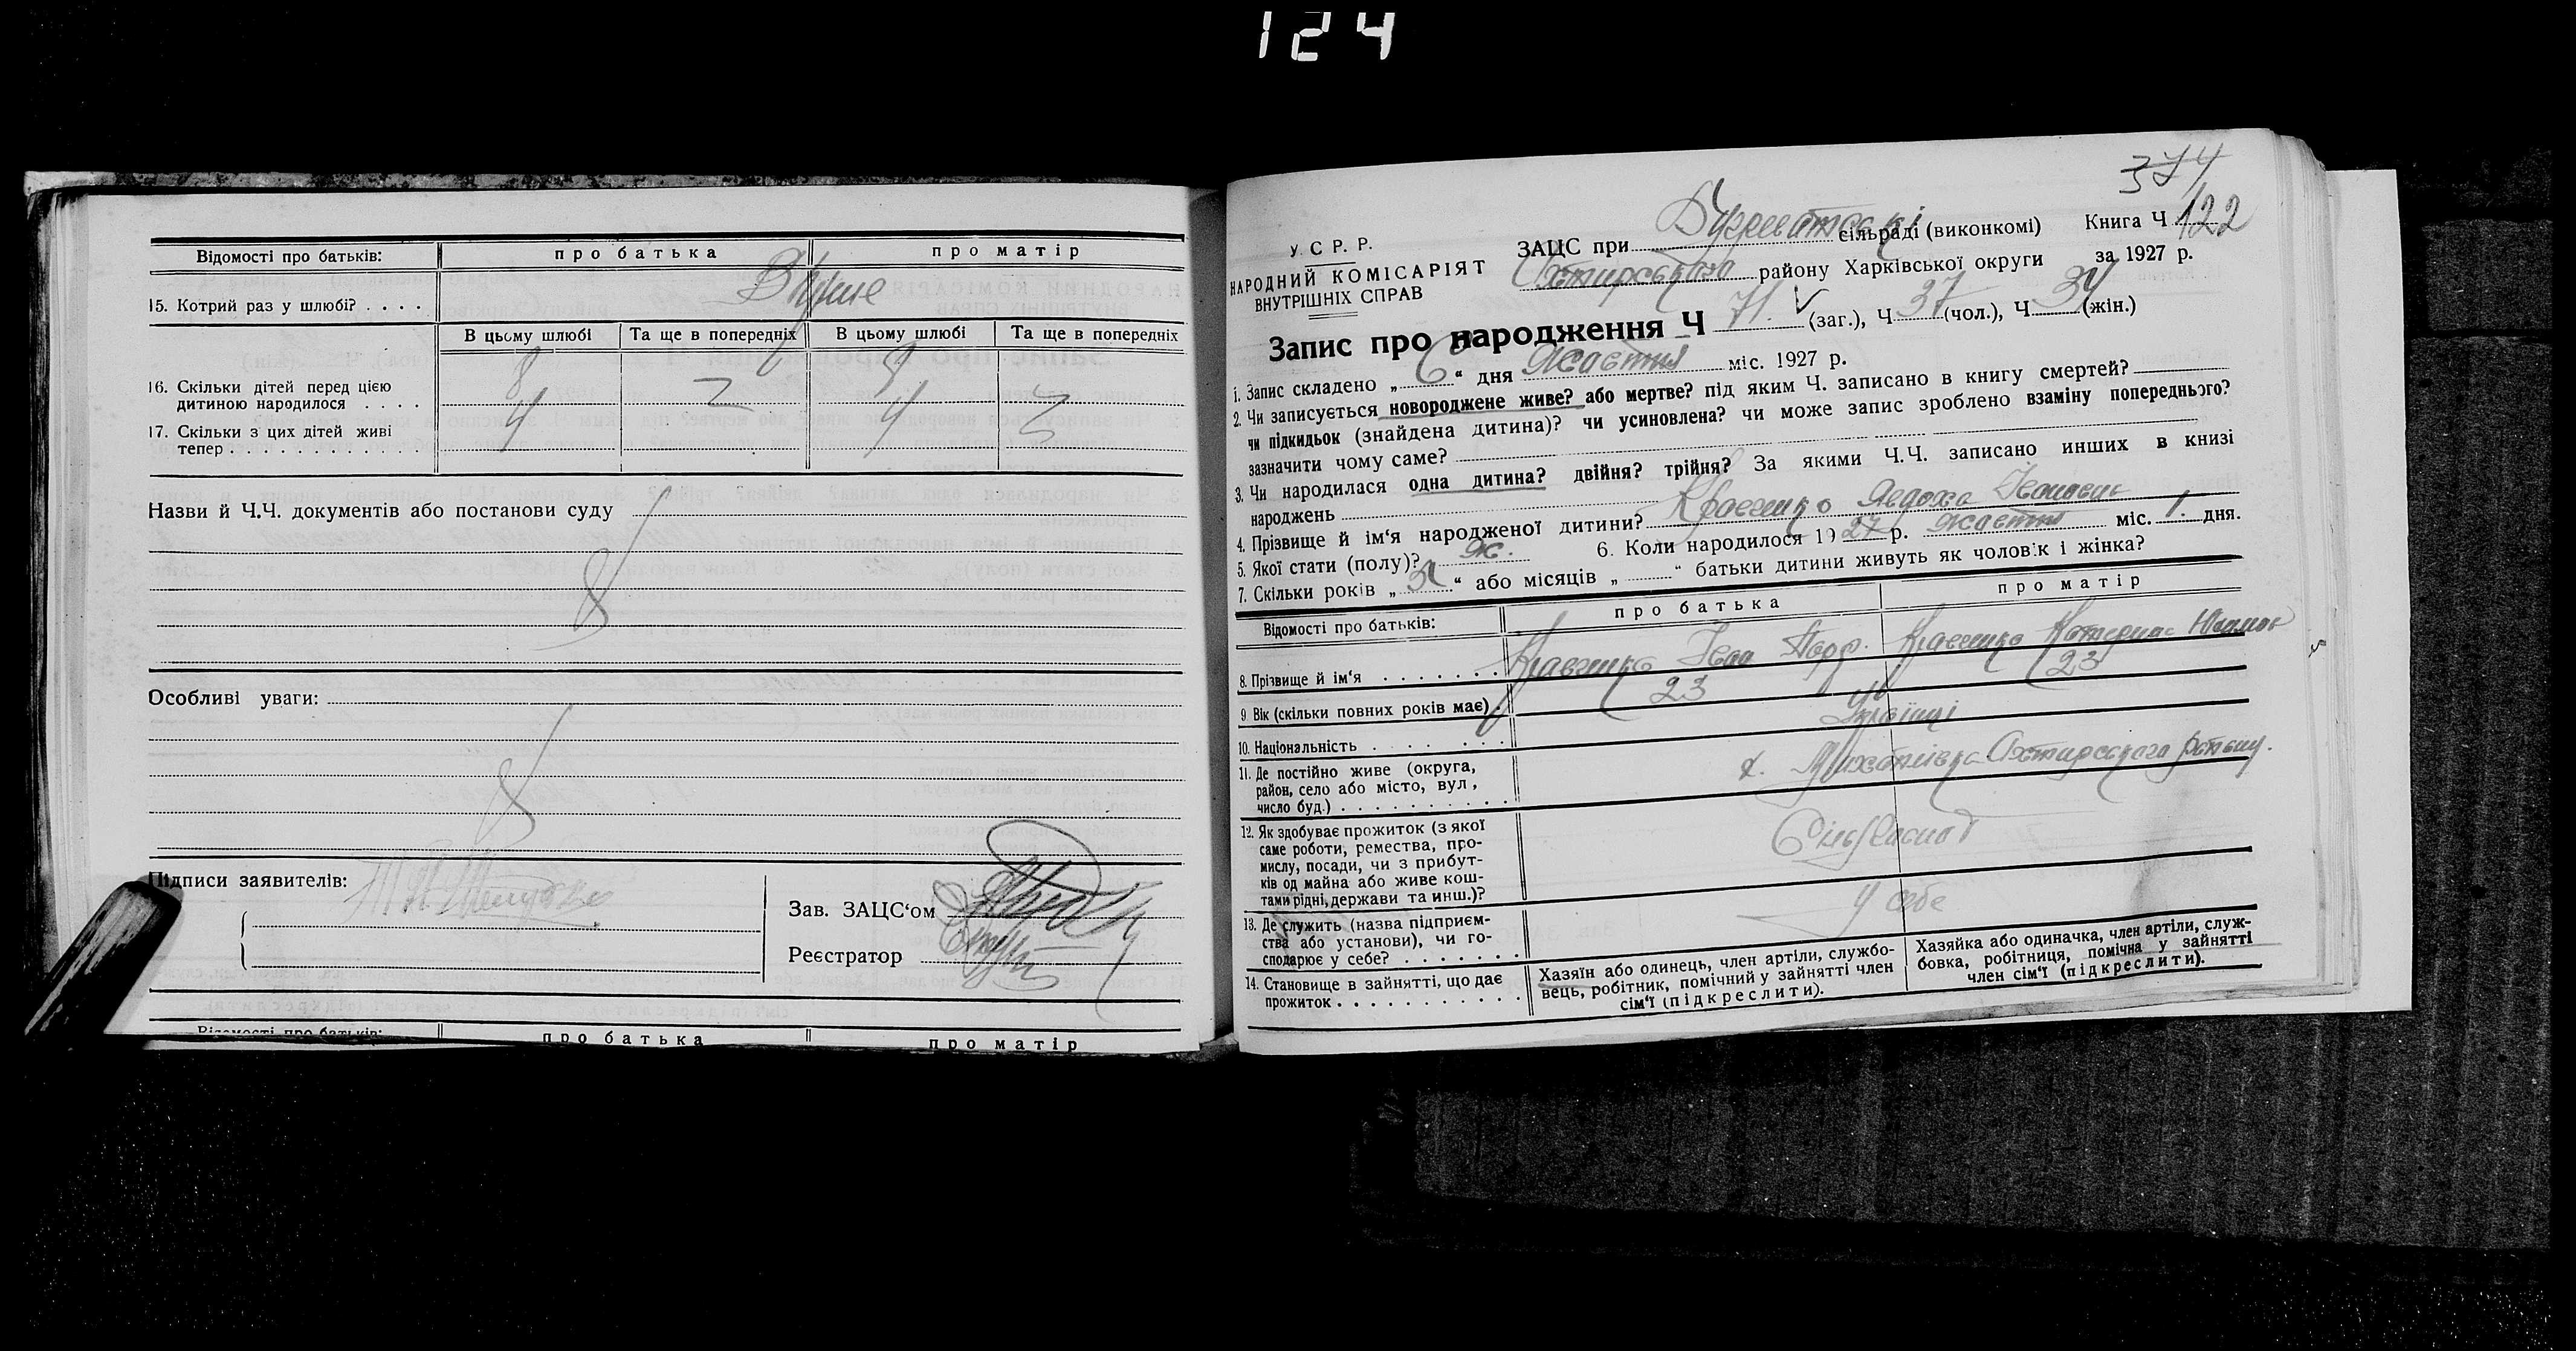 124
Відомості про батьків: про батька про матір
15. Котрий раз у шлюбі? . . . . Вперше
В цьому шлюбі Та ще в попередніх В цьому шлюбі Та ще в попередніх
16. Скільки дітей перед цією
дитиною народилося . . . .
17. Скільки з цих дітей живі
тепер . . . . . . . . . . . . 4 4
Назви й Ч.Ч. документів або постанови суду
Особливі уваги:
Підписи заявителів:
Зав. ЗАЦС‘ом
Реєстратор
Відомості про батьків: про батька про матір
374
У. С. Р. Р.
НАРОДНИЙ КОМІСАРІЯТ
ВНУТРІШНІХ СПРАВ
ЗАЦС при сільраді (виконкомі) Книга Ч 122
Охтирського району Харківської округи за 1927 р.
Запис про народження Ч 71. (заг.), Ч 37 (чол.), Ч 34 (жін.)
1. Запис складено „ 6 “ дня Жовтня міс. 1927 р.
2. Чи записується новороджене живе? або мертве? під яким Ч. записано в книгу смертей?
чи підкидьок (знайдена дитина)? чи усиновлена? чи може запис зроблено взаміну попереднього?
зазначити чому саме?
3. Чи народилася одна дитина? двійня? трійня? За якими Ч.Ч. записано инших в книзі
народжень
4. Прізвище й ім‘я народженої дитини? Кравченко Явдоха Іванівна
5. Якої стати (полу)? ж. 6. Коли народилося 1927 р. жовтня міс. 1. дня.
7. Скільки років „ “ або місяців „ “ батьки дитини живуть як чоловік і жінка?
Відомості про батьків: про батька про матір
8. Прізвище й ім‘я . . . . . . . Кравченко Іван Кравченко Катерина
9. Вік (скільки повних років має) . 23 23
10. Національність . . . . . . . Українці
11. Де постійно живе (округа,
район, село або місто, вул.,
число буд.) . . . . . . . . . . х. Михайлівка Охтирського району.
12. Як здобуває прожиток (з якої
саме роботи, ремества, про-
мислу, посади, чи з прибут-
ків од майна або живе кош-
тами рідні, держави та инш.)?
13. Де служить (назва підприєм-
ства або установи), чи го-
сподарює у себе? . . . . . . . У себе
14. Становище в зайнятті, що дає
прожиток . . . . . . . . . . .
Хазяїн або одинець, член артіли, службо-
вець, робітник, помічний у зайнятті член
сім‘ї (підкреслити).
Хазяйка або одиначка, член артіли, служ-
бовка, робітниця, помічна у зайнятті
член сім‘ї (підкреслити).